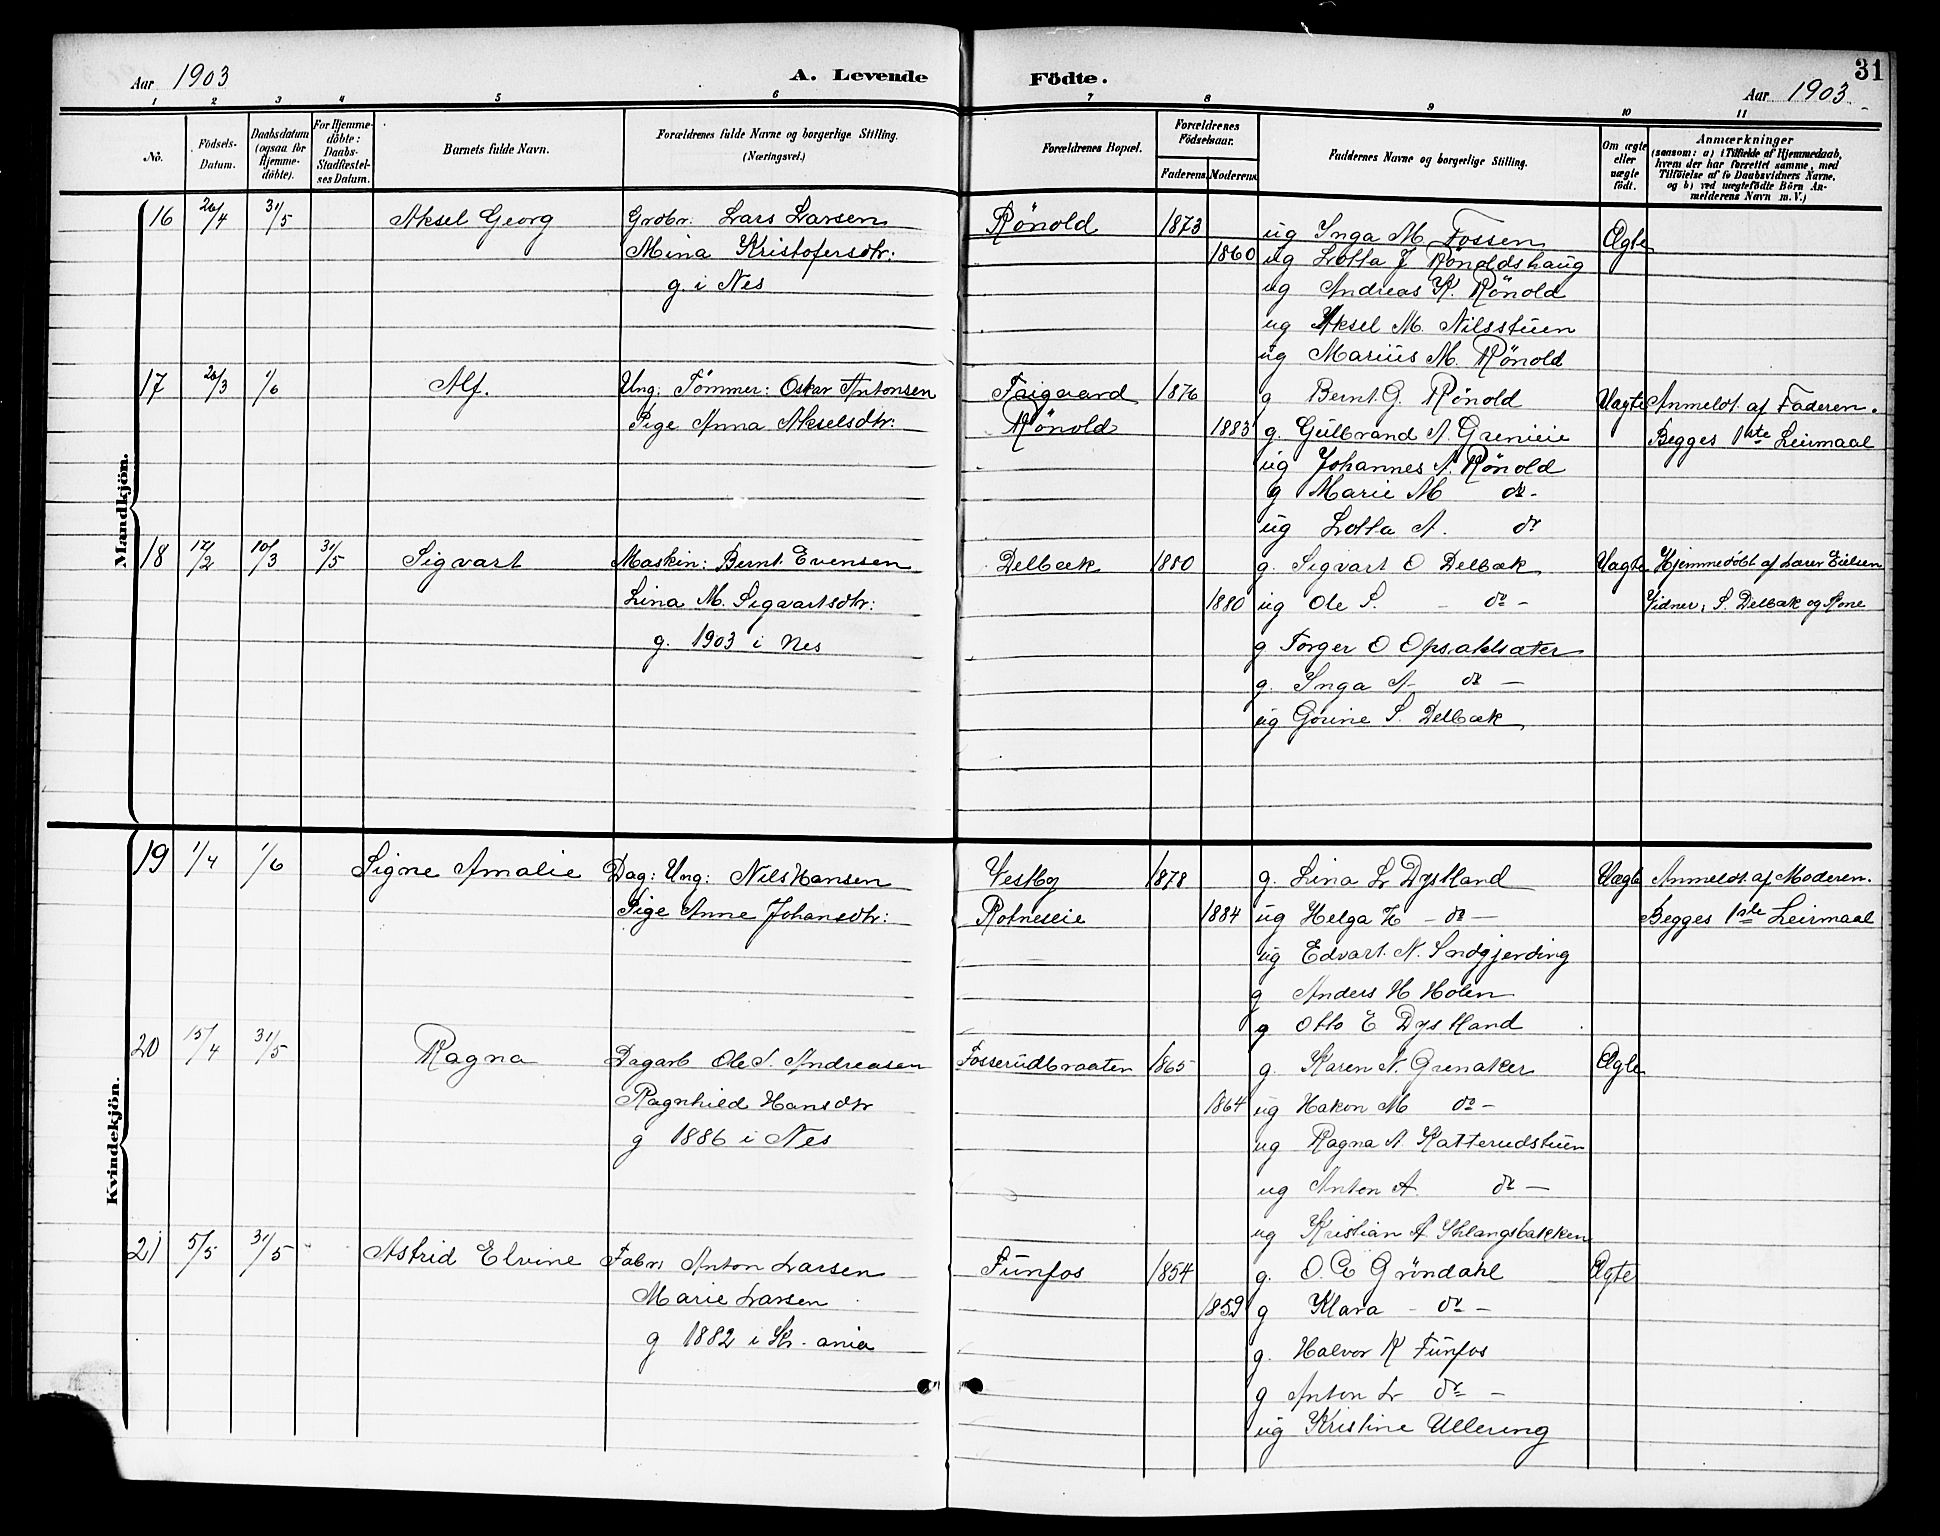 Aar 1903 A. Levende Födte. Aar 1903 31
1 2 3 4 5 6 7 8 9 10 11
No. Födsels-Datum. Daabsdatum (ogsaa for Hjemme-döbte). For Hjemme-döbte: Daabs-Stadfæstel-ses Datum. Barnets fulde Navn. Forældrenes fulde Navne og borgerlige Stilling. (Næringsvei.) Forældrenes Bopæl. Forældrenes Födselsaar. Faderens. Moderens. Faddernes Navne og borgerlige Stilling. Om ægte eller uægte födt. Anmærkninger (saasom: a) i Tilfælde af Hjemmedaab, hvem der har forrettet samme, med Tilföielse af to Daabsvidners Navne, og b) ved uægtefödte Börn An-melderens Navn m. V.)
Mandkjön.
16 26/4 31/5 Aksel Georg Grdbr. Lars Larsen Rönold 1873 ug Inga M. Fossen Ægte
Mina Kristofersdtr: 1860 ug Lotta J Rönoldshaug
g. i Nes ug Andreas K. Rönold
ug Aksel M. Nilsstuen
ug Marius M. Rönold
17 26/3 1/6 Alf. Ung: Tömmer: Oskar Antonsen Frigaard 1876 g Bernt. G. Rönold Uægte Anmeldt af Faderen.
Pige Anna Akselsdtr: Rönold 1883 g. Gulbrand A Grenieie Begges 1ste Leirmaal
ug Johannes A. Rönold
g Marie M do -
ug Lotta A. do
18 17/2 10/3 31/5 Sigvart Maskin: Bernt Evensen Delbæk 1880 g. Sigvart O Delbæk Uægte Hjemmedöbt af Lærer Eielsen
Lina M. Sigvartsdtr: 1880 ug Ole S. - do - Vidner: S. Delbæk og Kone
g. 1903 i Nes g Torger O Opsaklsæter
g. Inga A - do -
ug Gorine S. Delbæk
Kvindekjön.
19 1/4 1/6 Signe Amalie Dag: Ung: Nils Hansen Vestby 1878 g. Lina L Dystland Uægte Anmeldt af Moderen.
Pige Anne Johansdtr: Rotneseie 1884 ug Helga H - do - Begges 1ste Leirmaal
ug Edvart. N. Sndgjerding
g Anders H Holen
g Otto E Dystland
20 15/4 31/5 Ragna Dagarb Ole S. Andreasen Fosserudbraaten 1865 g. Karen N. Grenaker Ægte
Ragnhild Hansdtr 1864 ug Hakon M do -
g 1886 i Nes ug Ragna A. Katterudstuen
ug Anton A do -
ug Kristian A Sklangsbakken
21 5/5 31/5 Astrid Elvine Fabr: Anton Larsen Funfos 1854 g. O. E Gröndahl Ægte
Marie Larsen 1859 g Klara - do -
g 1882 i Kr. ania g. Halvor K Funfos
g Anton L do -
ug Kristine Ullering